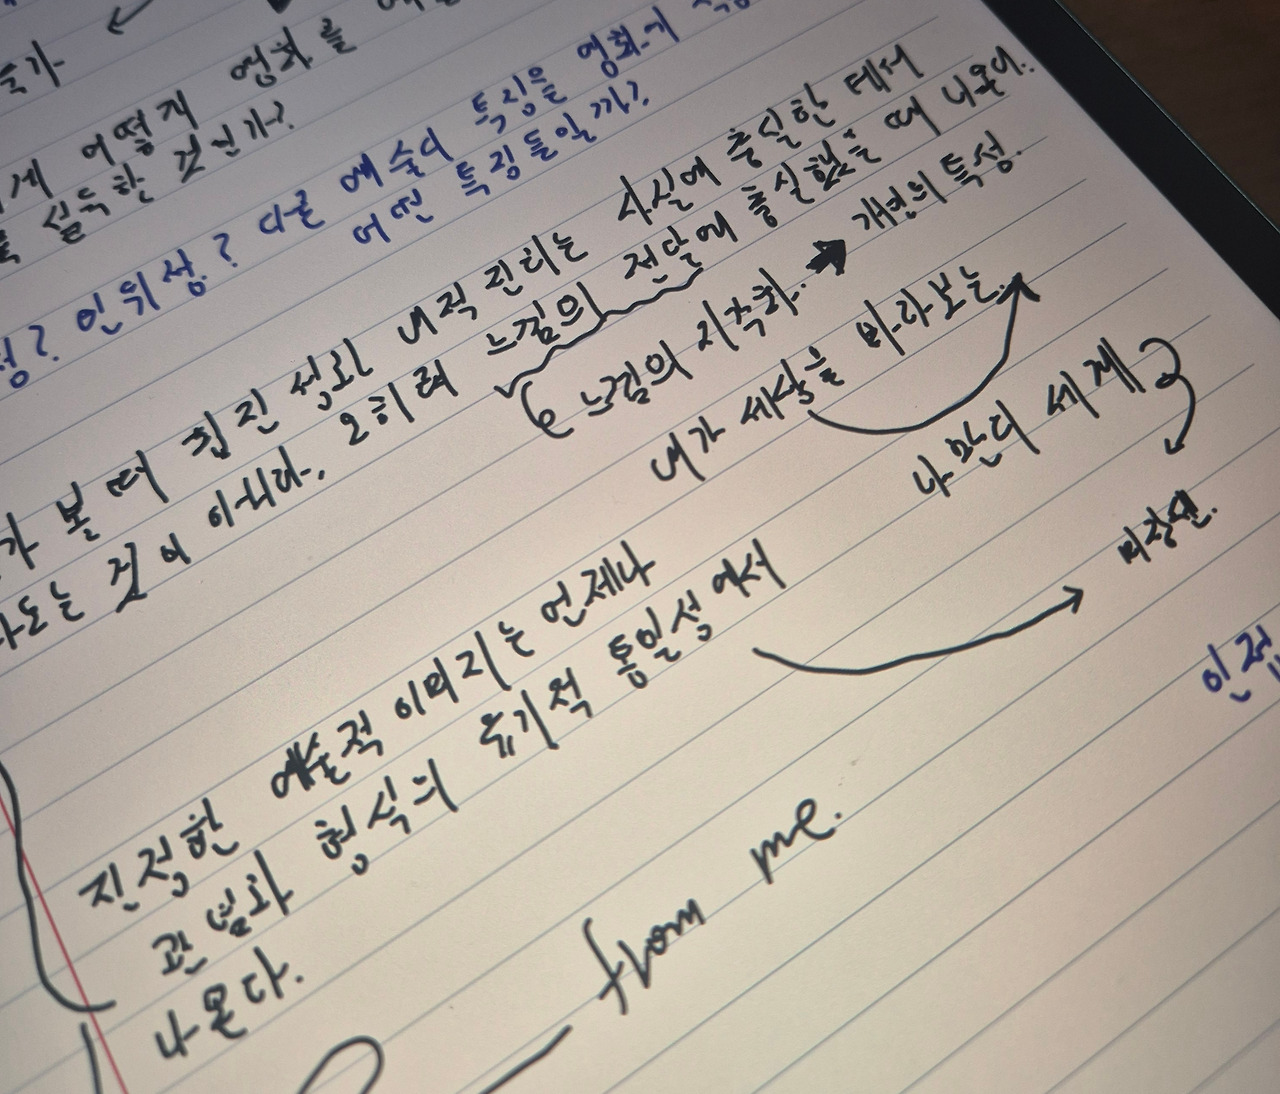 어떻게 영화를
설득한 것인가?
인위성? 다른 예술의 특징을 영화에
어떤 특징들일까?
가 볼 때 핍진성과 내적 진리는 사실에 충실한 데서
나오는 것이 아니다. 오히려 느낌의 전달에 충실했을 때 나온다.
느낌의 지각화. → 개인의 특성.
내가 세상을 바라보는
나만의 세계
미장센.
진정한 예술적 이미지는 언제나
관념과 형식의 유기적 통일성에서
나온다.
from me.